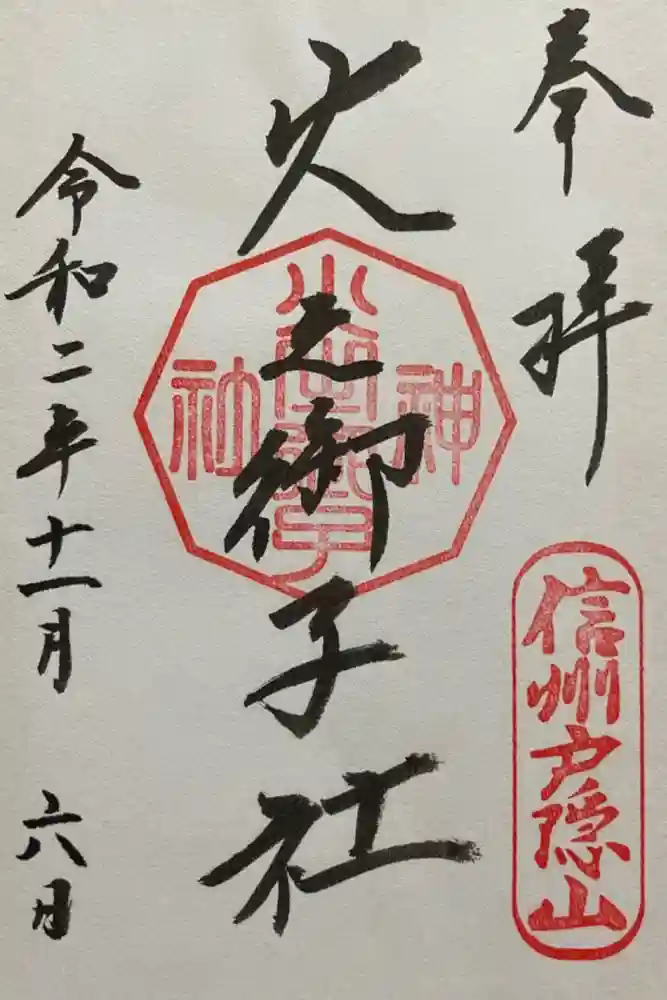 奉拝
信州戸隠山
火之御子社
神
社
令和二年十一月 六日